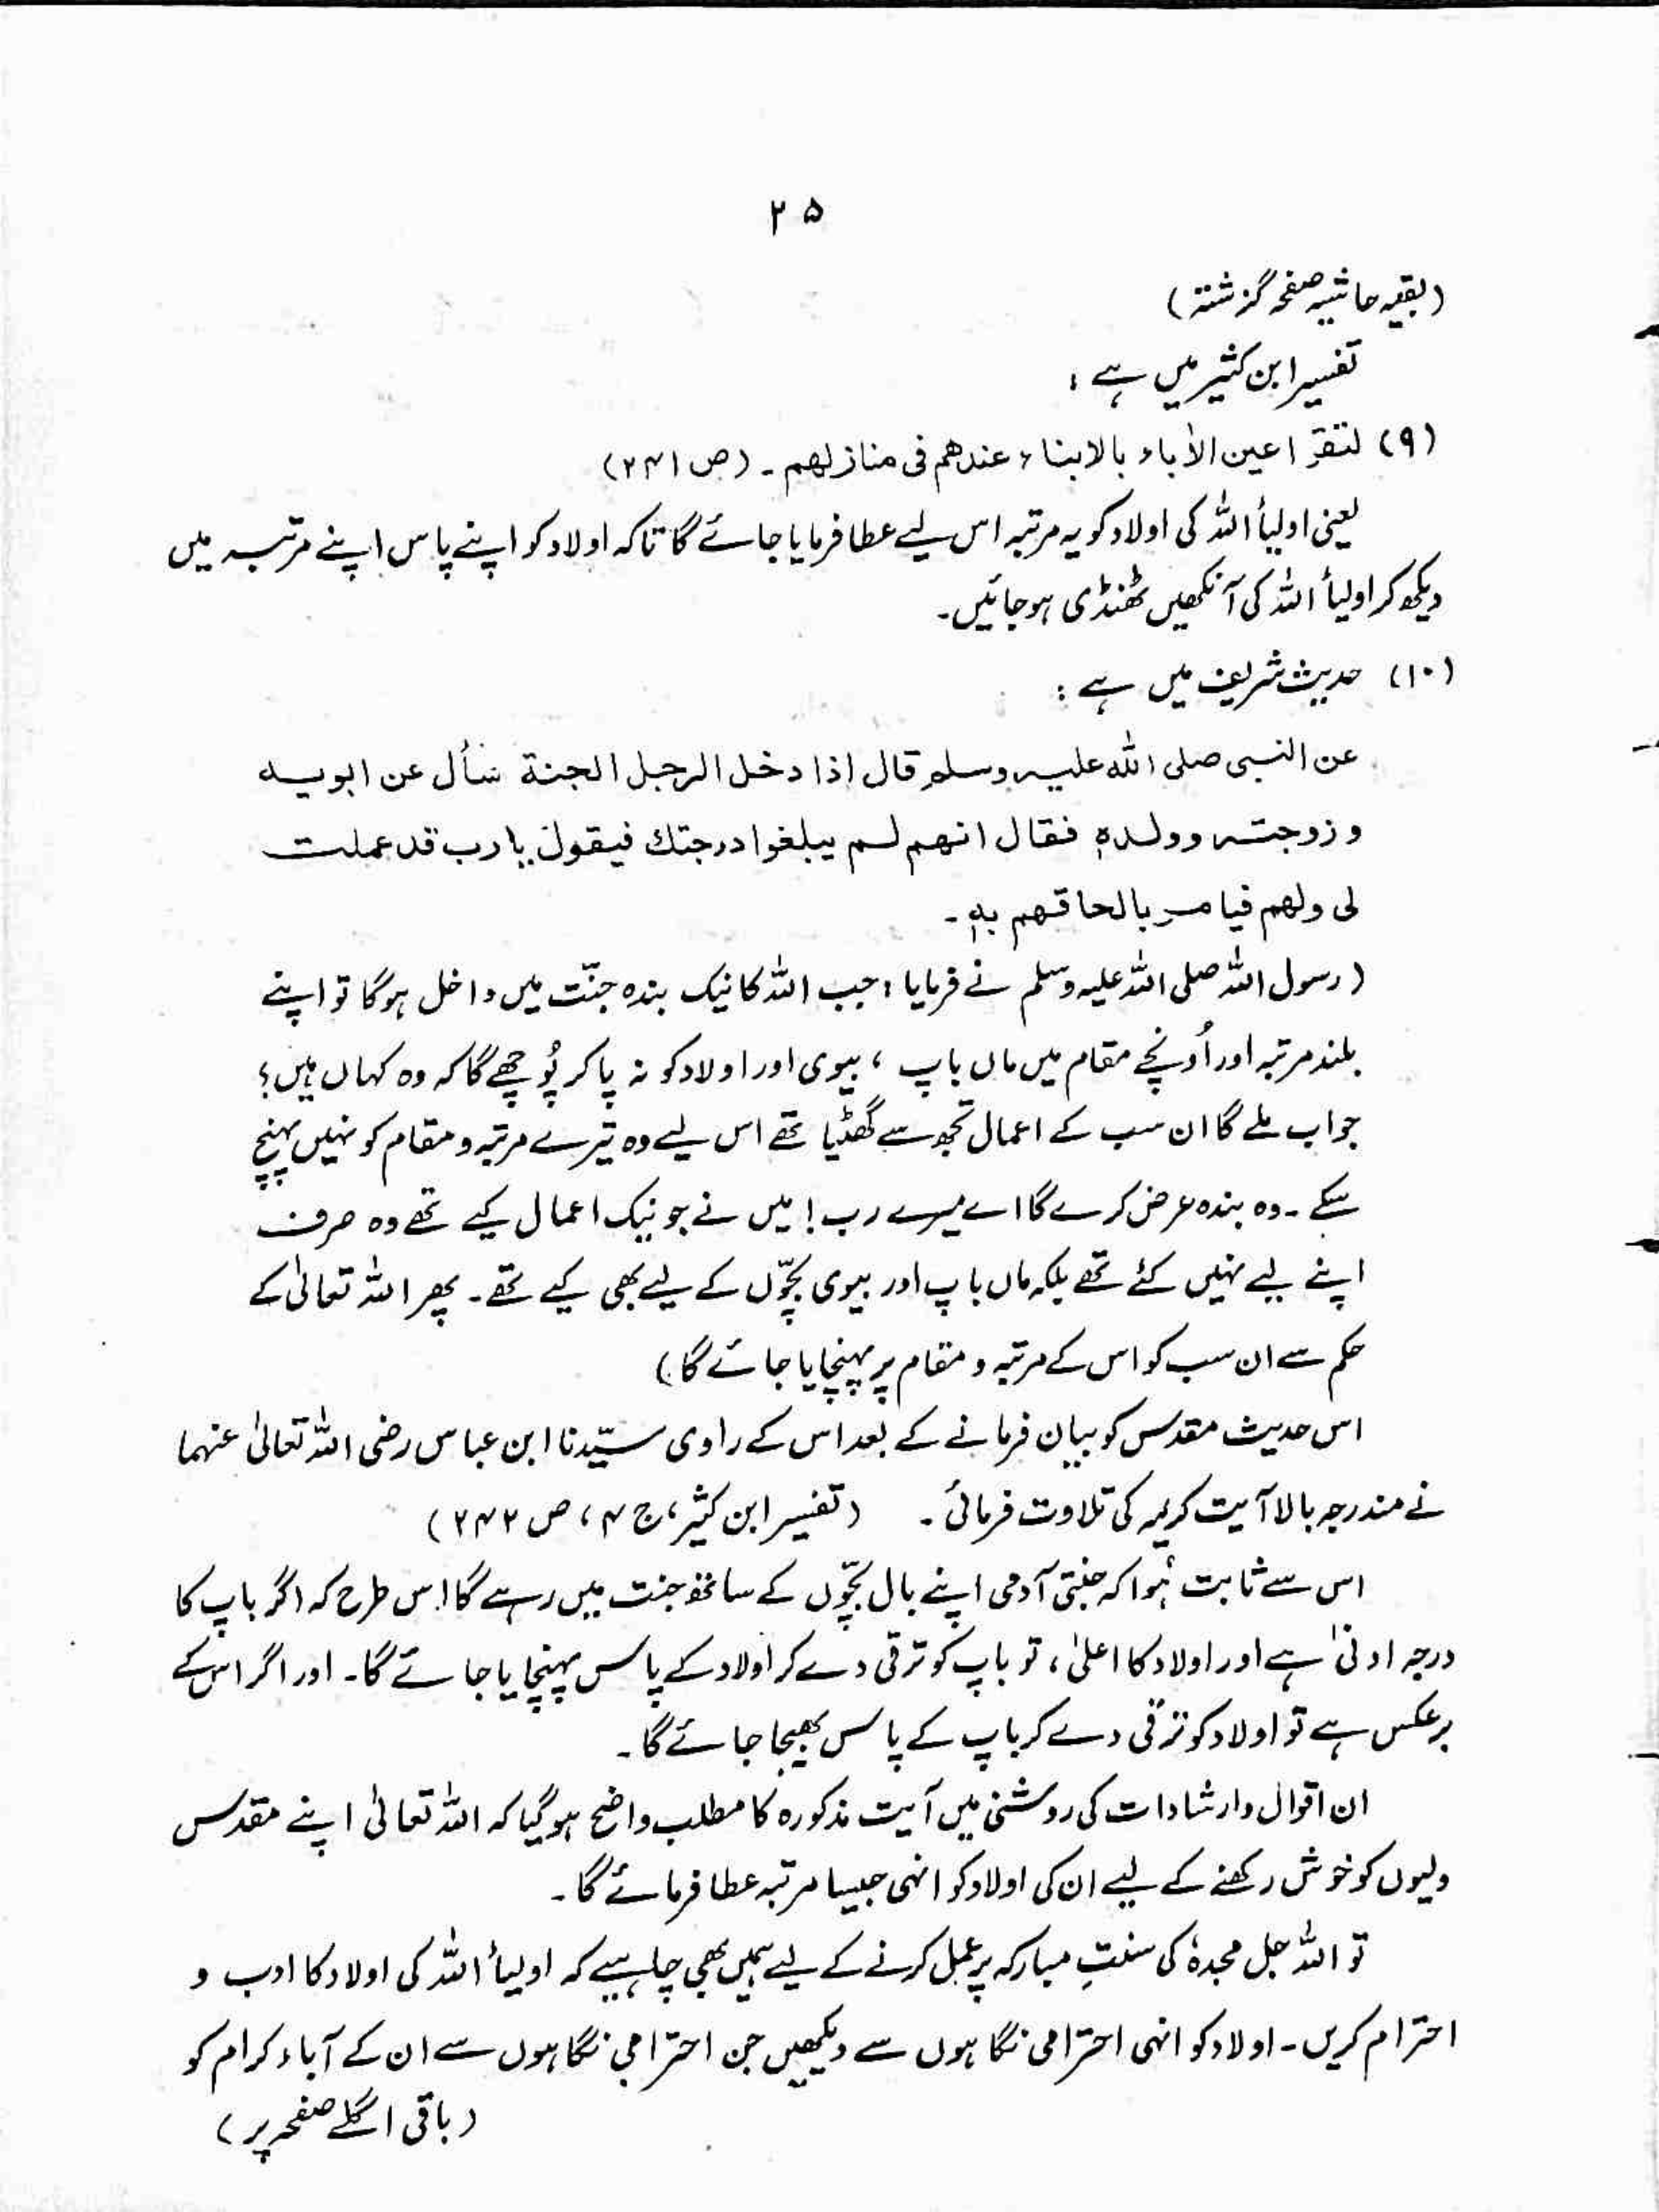 ۲۵
(بقیہ حاشیہ صفحہ گزشتہ)
تفسیر ابن کثیر میں ہے :
(۹) لتقرّ اعین الاٰباء بالابناء عندھم فی منازلھم ۔ (ص ۲۴۱)
یعنی اولیأ اللہ کی اولاد کو یہ مرتبہ اس لیے عطا فرمایا جائے گا تاکہ اولاد کو اپنے پاس اپنے مرتبہ میں
دیکھ کر اولیأ اللہ کی آنکھیں ٹھنڈی ہو جائیں۔
(۱۰) حدیث شریف میں ہے :
عن النبی صلی اللہ علیہ وسلم قال اذا دخل الرجل الجنة سأل عن ابویہ
و زوجتہ وولدہٖ فقال انھم لم یبلغوا درجتك فیقول یا رب قد عملت
لی ولھم فیامر بالحاقھم بہٖ۔
(رسول اللہ صلی اللہ علیہ وسلم نے فرمایا : جب اللہ کا نیک بندہ جنّت میں داخل ہوگا تو اپنے
بلند مرتبہ اور اُونچے مقام میں ماں باپ ، بیوی اور اولاد کو نہ پا کر پُوچھے گا کہ وہ کہاں ہیں؟
جواب ملے گا ان سب کے اعمال تجھ سے گھٹیا تھے اس لیے وہ تیرے مرتبہ و مقام کو نہیں پہنچ
سکے ۔ وہ بندہ عرض کرے گا اے میرے رب ! میں نے جو نیک اعمال کیے تھے وہ صرف
اپنے لیے نہیں کئے تھے بلکہ ماں باپ اور بیوی بچّوں کے لیے بھی کیے تھے۔ پھر اللہ تعالیٰ کے
حکم سے ان سب کو اس کے مرتبہ و مقام پر پہنچایا جائے گا)
اس حدیث مقدس کو بیان فرمانے کے بعد اس کے راوی سیّدنا ابن عباس رضی اللہ تعالیٰ عنہما
نے مندرجہ بالا آیت کریمہ کی تلاوت فرمائی ۔ (تفسیر ابن کثیر، ج ۴ ، ص ۲۴۲)
اس سے ثابت ہُوا کہ جنتی آدمی اپنے بال بچّوں کے ساتھ جنت میں رہے گا اس طرح کہ اگر باپ کا
درجہ ادنیٰ ہے اور اولاد کا اعلیٰ ، تو باپ کو ترقی دے کر اولاد کے پاس پہنچایا جائے گا۔ اور اگر اس کے
برعکس ہے تو اولاد کو ترقی دے کر باپ کے پاس بھیجا جائے گا ۔
ان اقوال و ارشادات کی روشنی میں آیت مذکورہ کا مطلب واضح ہو گیا کہ اللہ تعالیٰ اپنے مقدس
ولیوں کو خوش رکھنے کے لیے ان کی اولاد کو انہی جیسا مرتبہ عطا فرمائے گا ۔
تو اللہ جل مجدہٗ کی سنتِ مبارکہ پر عمل کرنے کے لیے ہمیں بھی چاہیے کہ اولیأ اللہ کی اولاد کا ادب و
احترام کریں ۔ اولاد کو انہی احترامی نگاہوں سے دیکھیں جن احترامی نگاہوں سے ان کے آباء کرام کو
(باقی اگلے صفحہ پر)